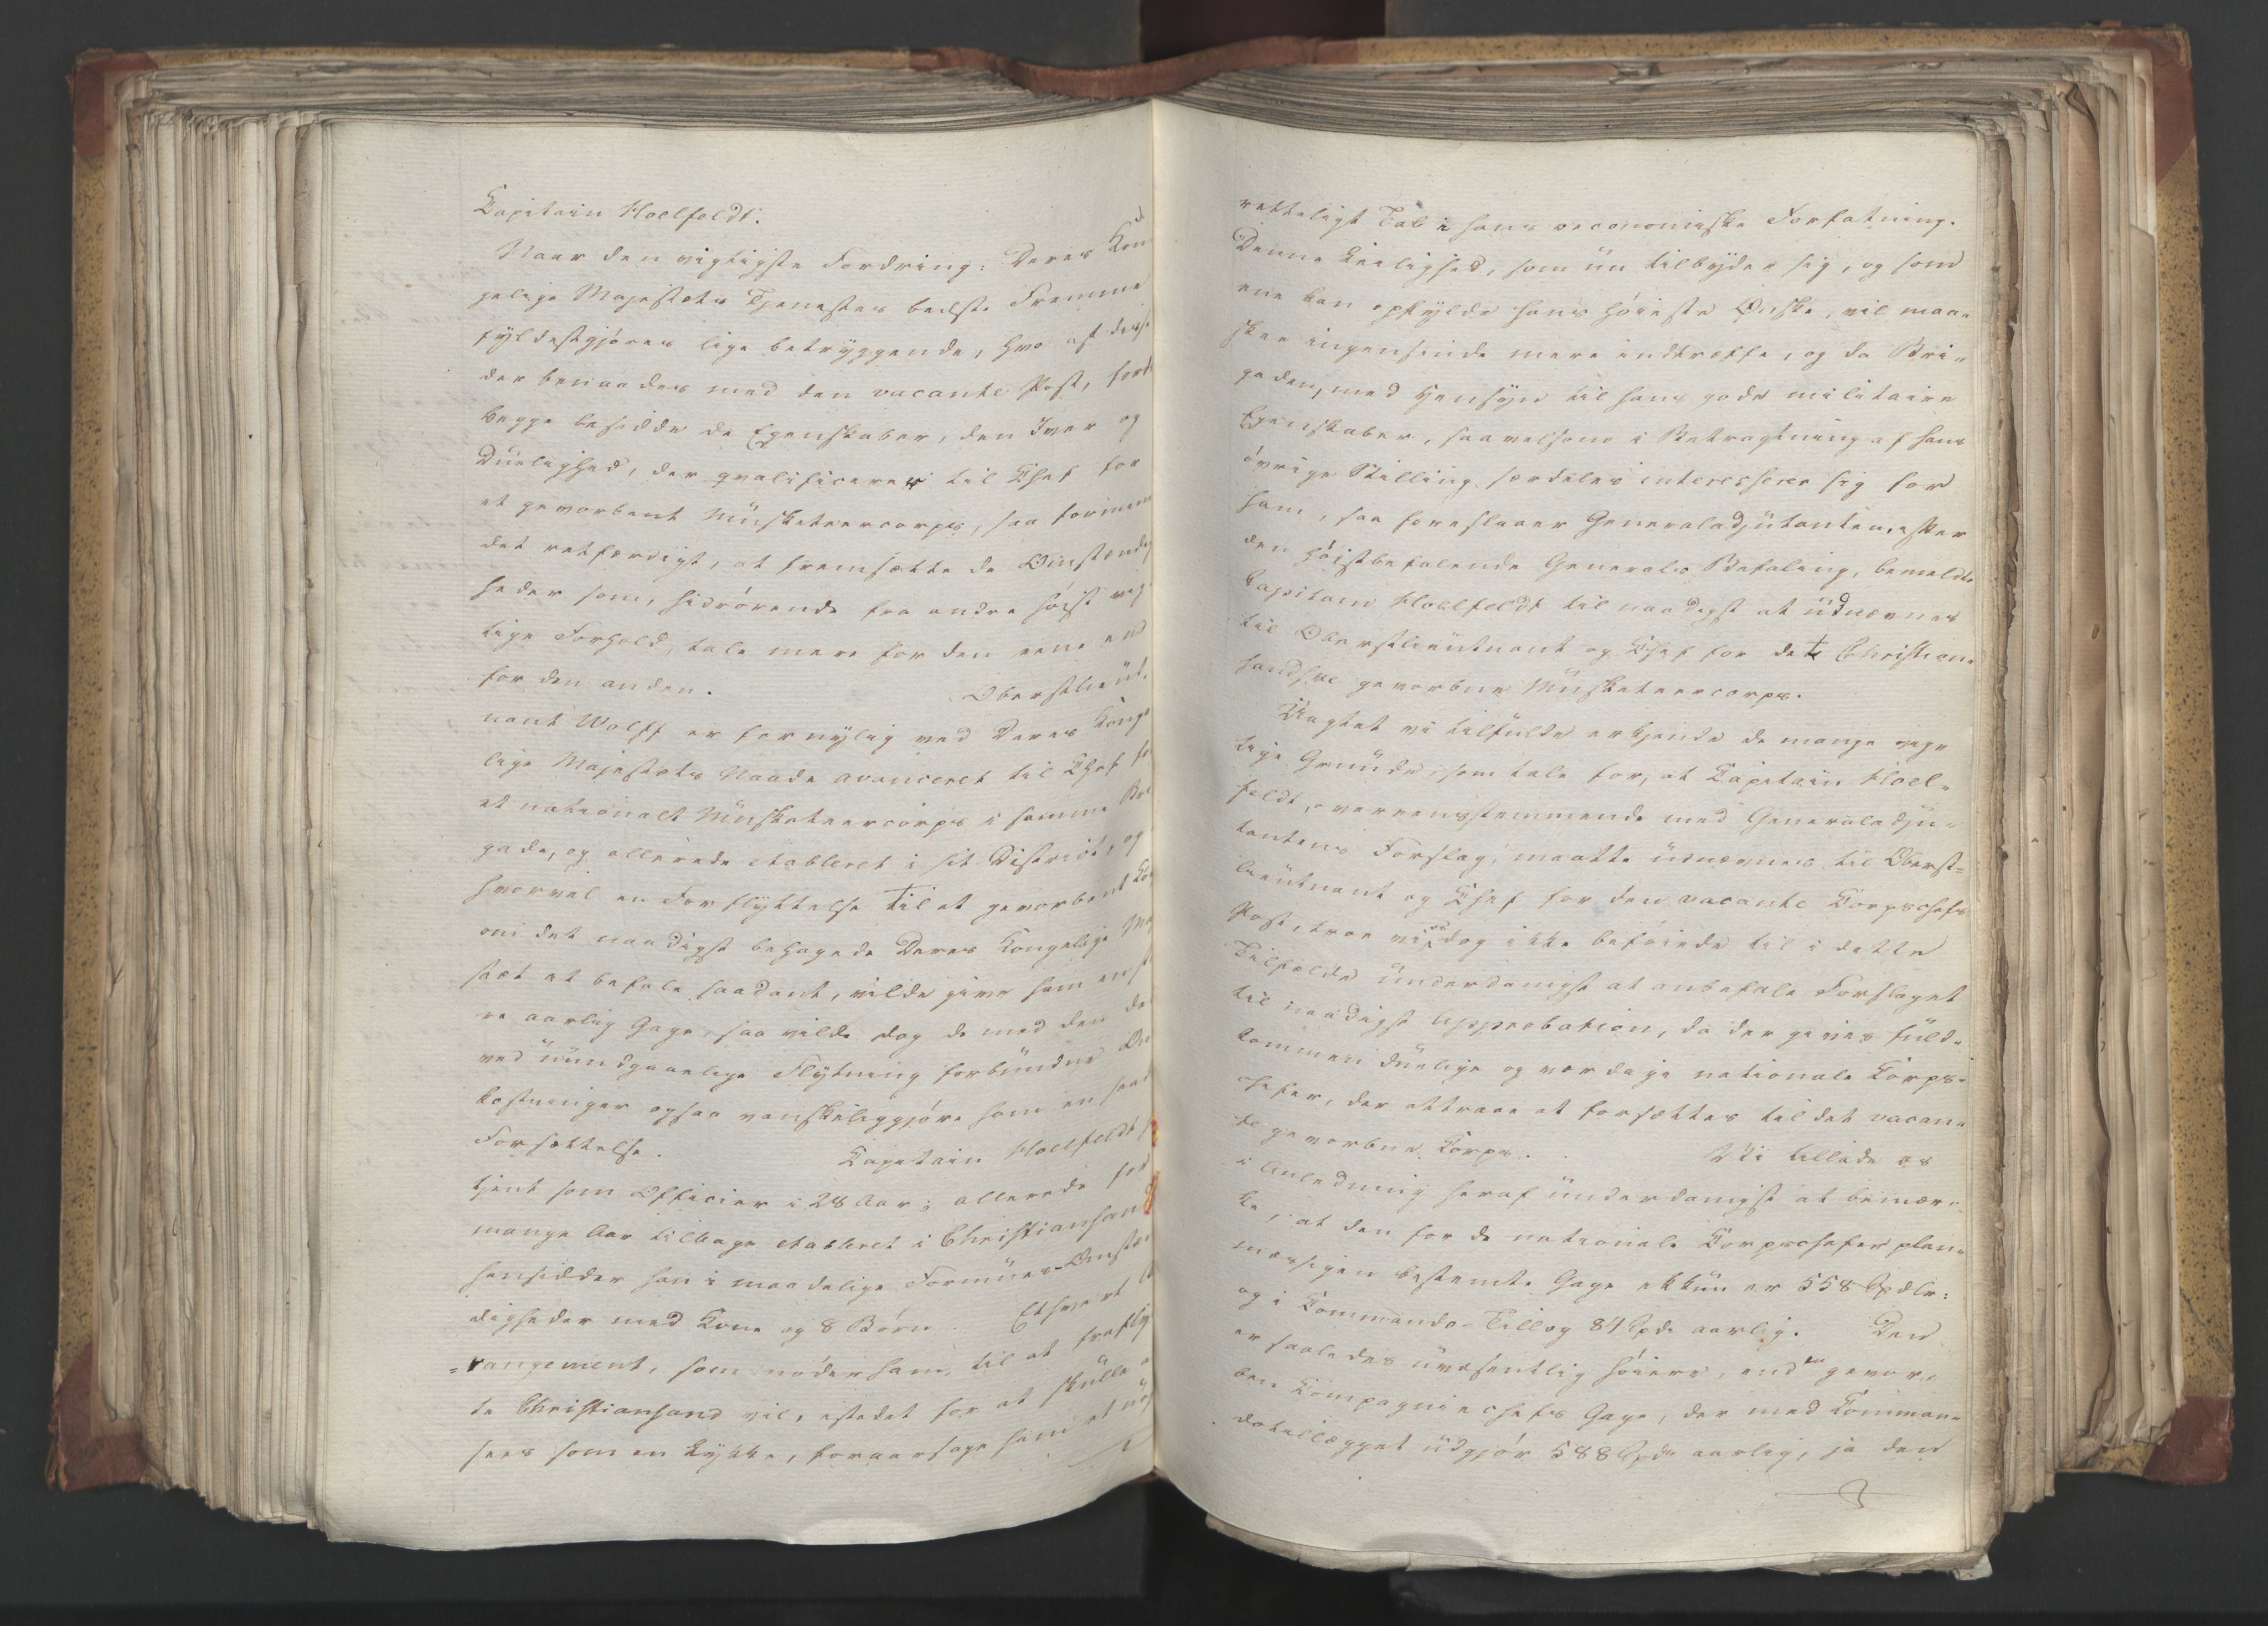 Kapitain Hoelfeldt.
Naar den vigtigste Fordring: Deres Kon
gelige Majestæts Tjenestes bedste Fremme
fyldestgjøres lige betryggende, hvo af disse
der benaades med den vacante Post, fordi
begge besidde de Egenskaber, den Iver og
Duelighed, der qvalificerer til Chef for
et gevorbent Musketeercorps, saa formeen
det retfærdigt, at fremsætte de Omstændig
heder som, hidrørende fra andre høist vig
tige Forhold, tale mere for den eene end
for den anden. Oberstlieut.
nant Wolff er fornylig ved Deres Konge
lige Majestæts Naade avanceret til Chef for
et nationalt Musketeercorps i samme Bri
gade, og allerede etableret i sit District, og
hvorvel en Forflyttelse til et gevorbent Kor
om det naadigst behagede Deres Kongelige Maj
stæt at befale saadant, vilde give ham en stø
re aarlig Gage, saa vilde dog de med den der
ved uundgaaelige Flytning forbundne Om
kostninger ogsaa vanskeliggjøre ham en saad
Forsættelse. Kapitain Hoelfeldt h
tjent som Officier i 28 Aar; allerede for
mange Aar tilbage etableret i Christiansand
hensidder han i maadelige Formues-Omstæn
digheder med Kone og 8 Børn. Ethvert A
=rangement, som nøder ham til at frafly
te Christiansand vil, istedet for at skulle a
sees som en Lykke, foraarsage ham et uop
retteligt Tab i hans oeconomiske Forfatning.
Denne Leilighed, som nu tilbyder sig, og som
ene kan opfylde hans høieste Ønske, vil maa-
skee ingensinde mere indtræffe, og da Bri-
gaden, med Hensyn til hans gode militaire
Egenskaber, saavelsom i Betragtning af hans
øvrige Stilling særdeles interesserer sig for
ham, saa foreslaaer Generaladjutanten, efter
den høistbefalende Generals Befaling, bemeldte
Capitain Hoelfeldt til naadigst at udnævnes
til Oberstlieutnant og Chef for det Christian-
sandske gevorbne Musketeercorps.
Uagtet vi tilfulde erkjende de mange vigt
tige Grunde, som tale for, at Capitain Hoel-
feldt, overeensstemmende med Generaladju-
tantens Forslag, maatte udnævnes til Oberst-
lieutnant og Chef for den vacante Corpschefs
Post, troe vi os dog ikke beføiede til i dette
Tilfælde underdanigst at anbefale Forslaget
til naadigst Approbation, da der gives fuld-
kommen duelige og værdige nationale Corps-
chefer, der attraae at forsættes til det vacan-
te gevorbne Corps. Vi tillade os
i Anledning heraf underdanigst at bemær-
ke, at den for de nationale Corpschefer plan-
mæssigen bestemte Gage ekkun er 558 Spdlr:
og i Commando-Tillæg 84 Spd. aarlig. Den
er saaledes uvæsentlig høiere, end en gevor-
ben Compagniechefs Gage, der med Comman-
dotillægget udgjør 588 Spdr aarlig, ja den